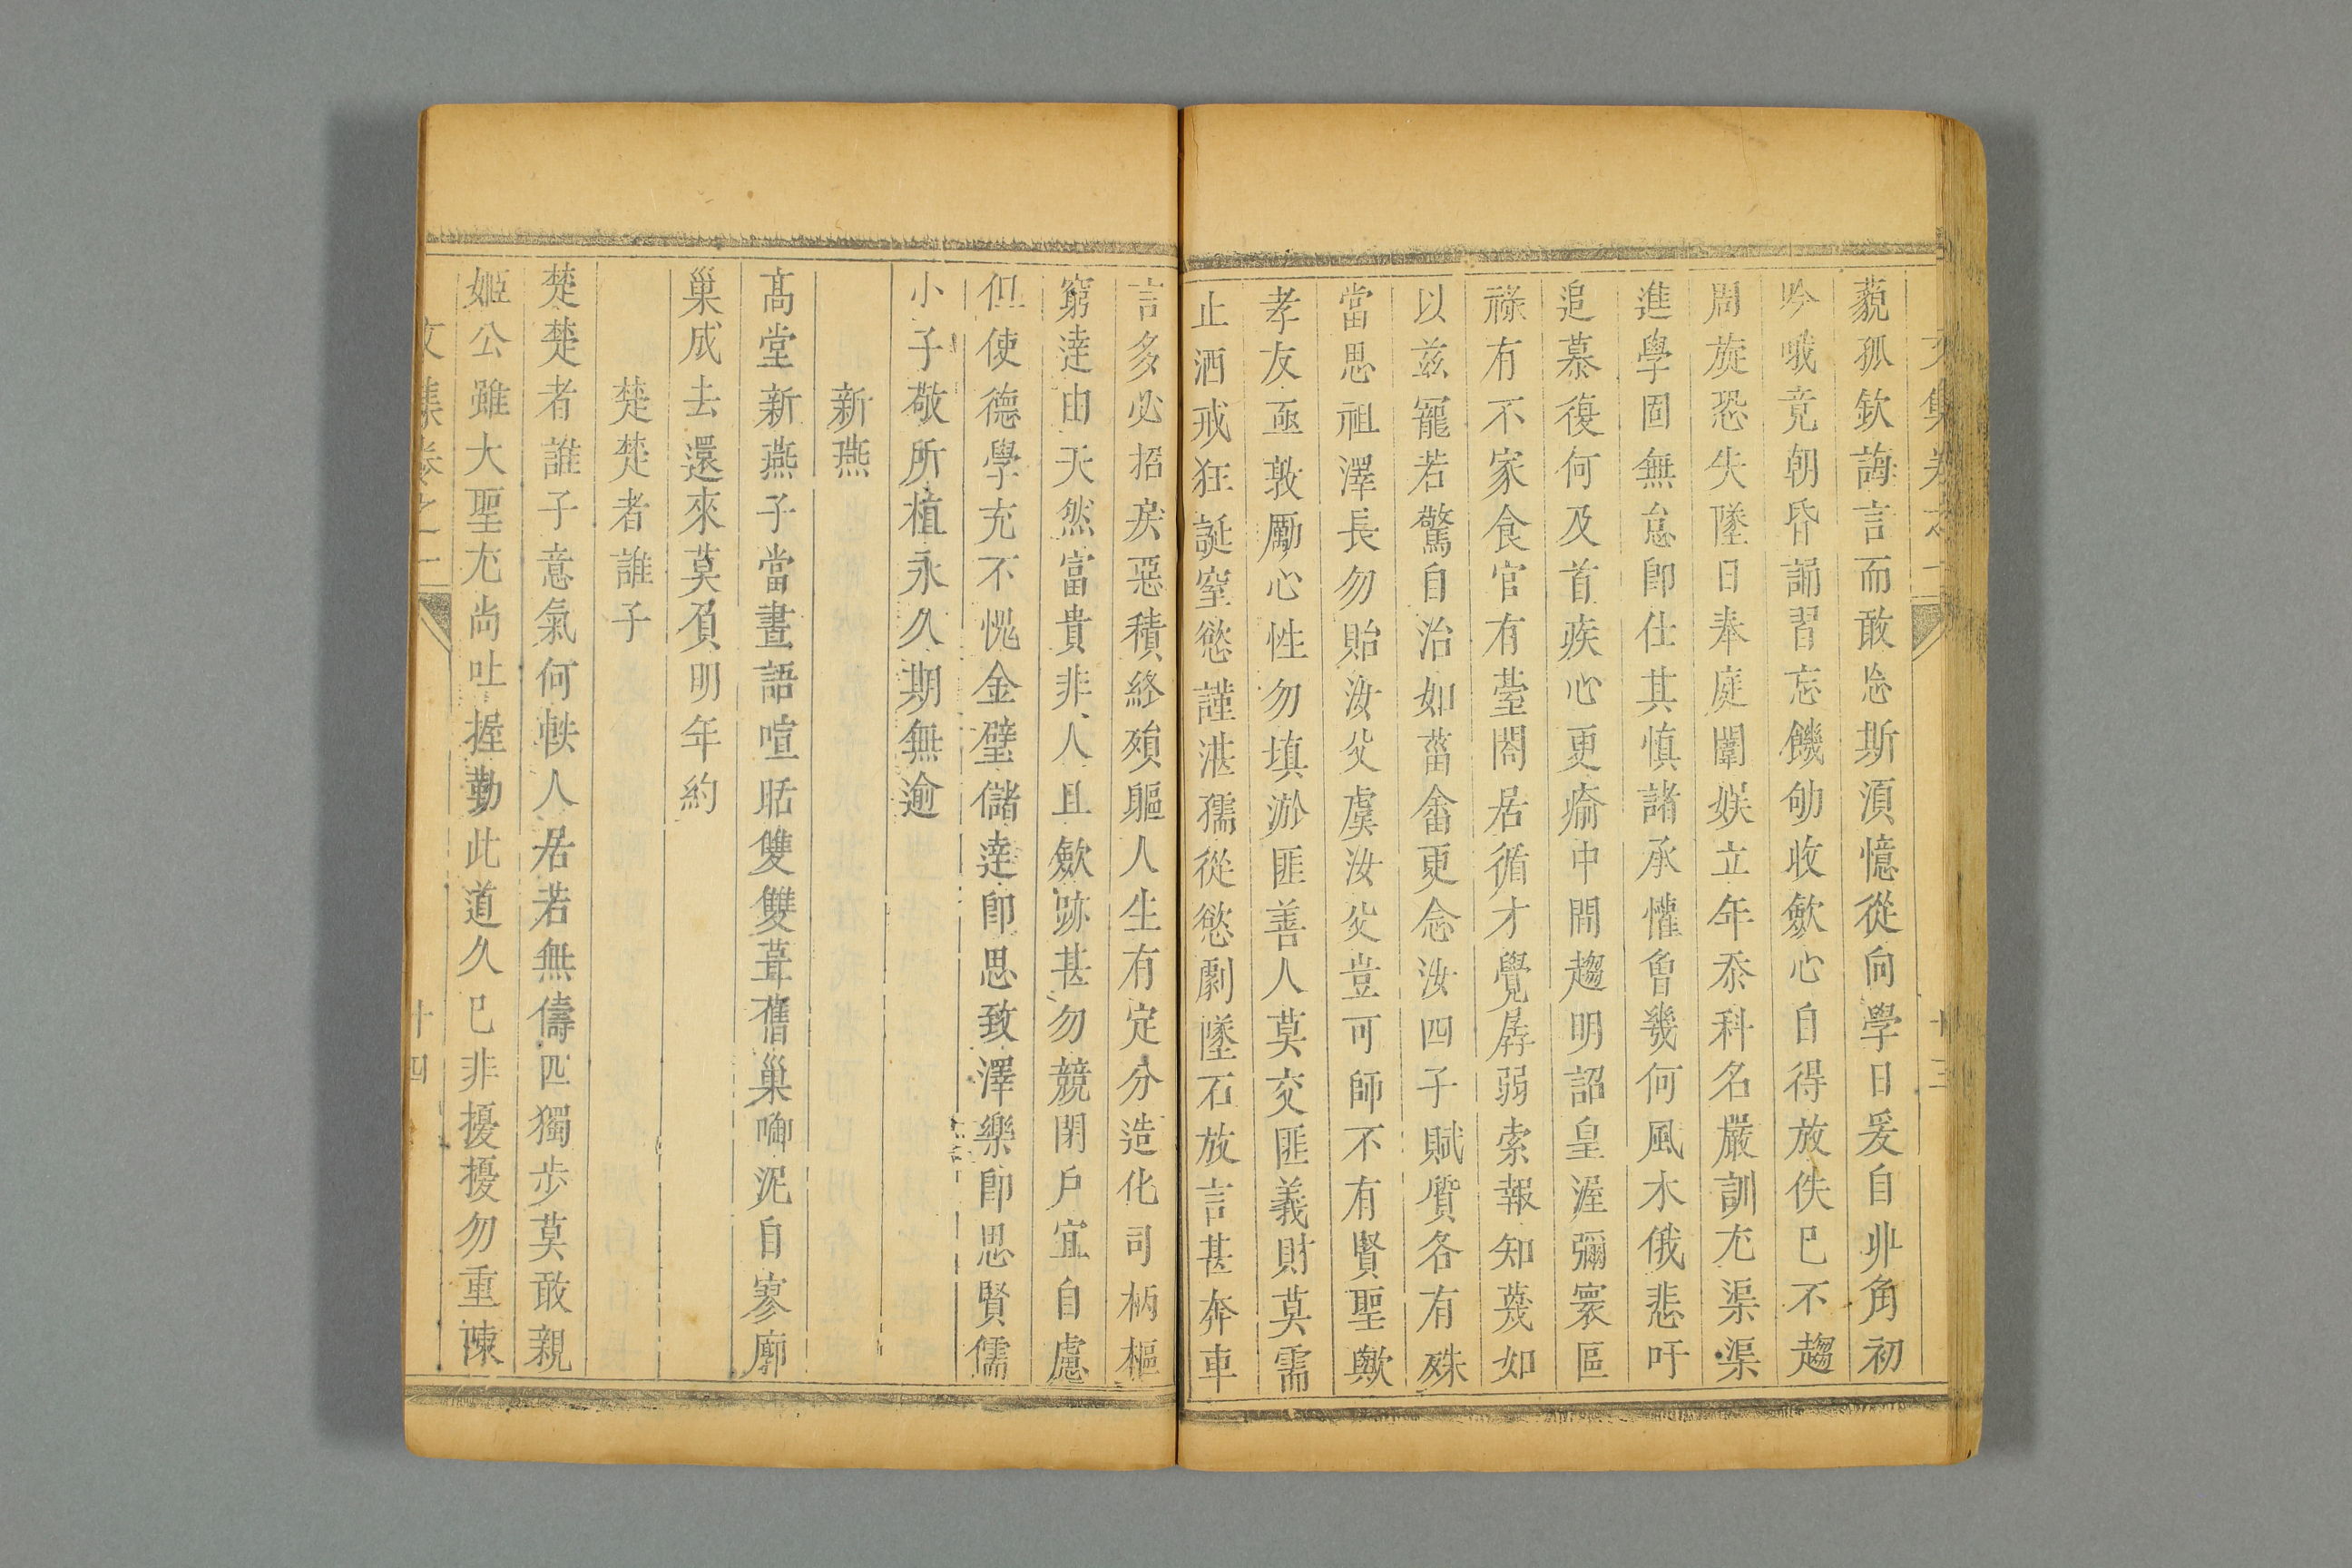 文集卷之二 十三
藐孤欽誨言而敢忘斯須憶從向學日爰自丱角初
吟哦竟朝昏誦習忘饑劬收歛心自得放佚已不趨
周旋恐失墜日奉庭闈娱立年忝科名嚴訓尤渠渠
進學固無怠卽仕其慎諸承懽曾幾何風木俄悲吁
追慕復何及首疾心更瘉中間趨明詔皇渥彌寰區
祿有不家食官有薹閤居循才覺孱弱索報知蔑如
以兹寵若驚自治如菑畬更念汝四子賦質各有殊
當思祖澤長勿貽汝父虞汝父豈可師不有賢聖歟
孝友亟敦勵心性勿填淤匪善人莫交匪義財莫需
止酒戒狂誕窒慾謹湛孺從慾劇墜石放言甚奔車
言多必招戾惡積終殞軀人生有定分造化司柄樞
窮達由天然富貴非人且歛跡甚勿競閉戶宜自慮
但使德學充不愧金璧儲達卽思致澤樂卽思賢儒
小子敬所植永久期無逾
新燕
高堂新燕子當晝語喧聒雙雙葺舊巢啣泥自寥廓
巢成去還來莫負明年約
楚楚者誰子
楚楚者誰子意氣何軼人居若無儔匹獨步莫敢親
姬公雖大聖尤尚吐握勤此道久已非擾擾勿重陳
文集卷之二 十四